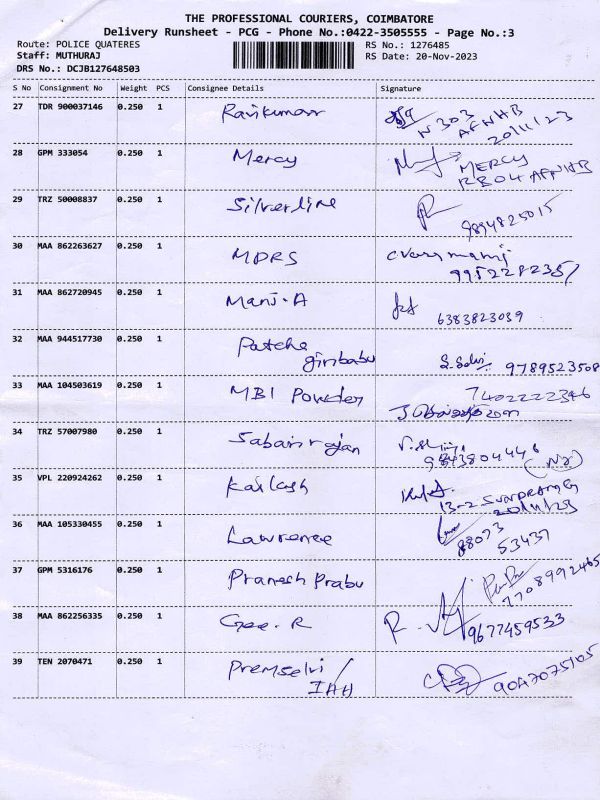 THE PROFESSIONAL COURIERS, COIMBATORE
Delivery Runsheet - PCG - Phone No.:0422-3505555 - Page No.:3
Route: POLICE QUATERES
RS No.: 1276485
Staff: MUTHURAJ
RS Date: 20-Nov-2023
DRS No.: DCJB127648503
S No Consignment No Weight PCS Consignee Details Signature
27 TDR 900037146 0.250 1 Ravikumar N303
AFNHB
20/11/23
28 GPM 333054 0.250 1 Mercy MERCY
RB04 AFNHB
29 TRZ 50008837 0.250 1 Silverline
9894825015
30 MAA 862263627 0.250 1 MDRS
31 MAA 862720945 0.250 1 Mani-A
6383823039
32 MAA 944517730 0.250 1 Patcha
giribabu S. Selvi 9789523508
33 MAA 104503619 0.250 1 MBI Powder 7402222346
34 TRZ 57007980 0.250 1 Sabarirajan
9843804446
35 VPL 220924262 0.250 1 Kailash
13-2
20/11/23
36 MAA 105330455 0.250 1 Lawrence 88073
53437
37 GPM 5316176 0.250 1 Pranesh Prabu
7708992465
38 MAA 862256335 0.250 1 Gee.R R.
9677459533
39 TEN 2070471 0.250 1 Premselvi /
IAH 9047075105